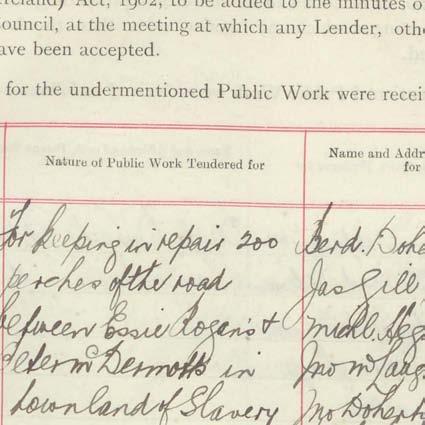 Ireland) Act, 1902, to be added to the minutes of
Council, at the meeting at which any Lender, othe
ave been accepted.
for the undermentioned Public Work were recei
Nature of Public Work Tendered for
Name and Addre
for
For keeping in repair 200
perches of the road
between Essie Rogan's &
Peter McDermotts in
townland of Slavery
Berd. Dohe
Jas Gill
Michl. Heg
Jno McLaug
Jno Doherty